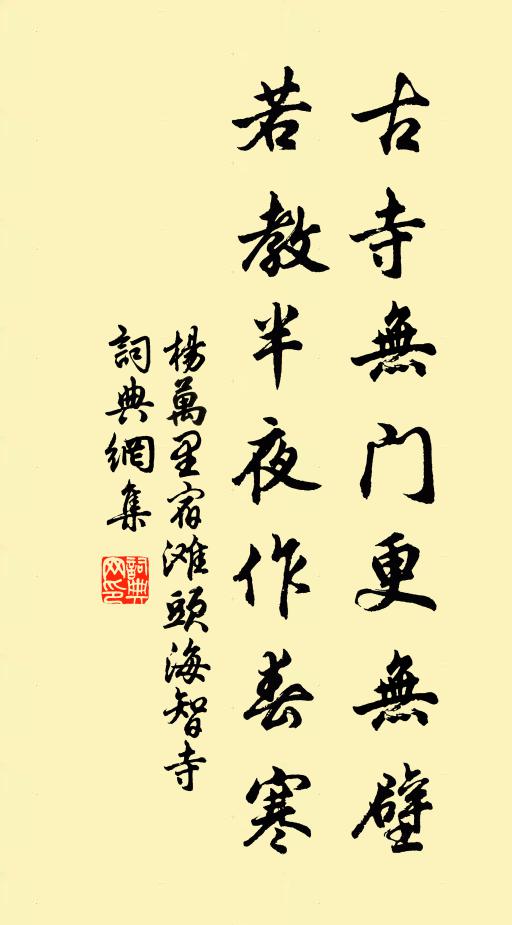 古寺無门更無壁
若教半夜作春寒
楊萬里宿滩頭海智寺
詞典網集
詞典网印